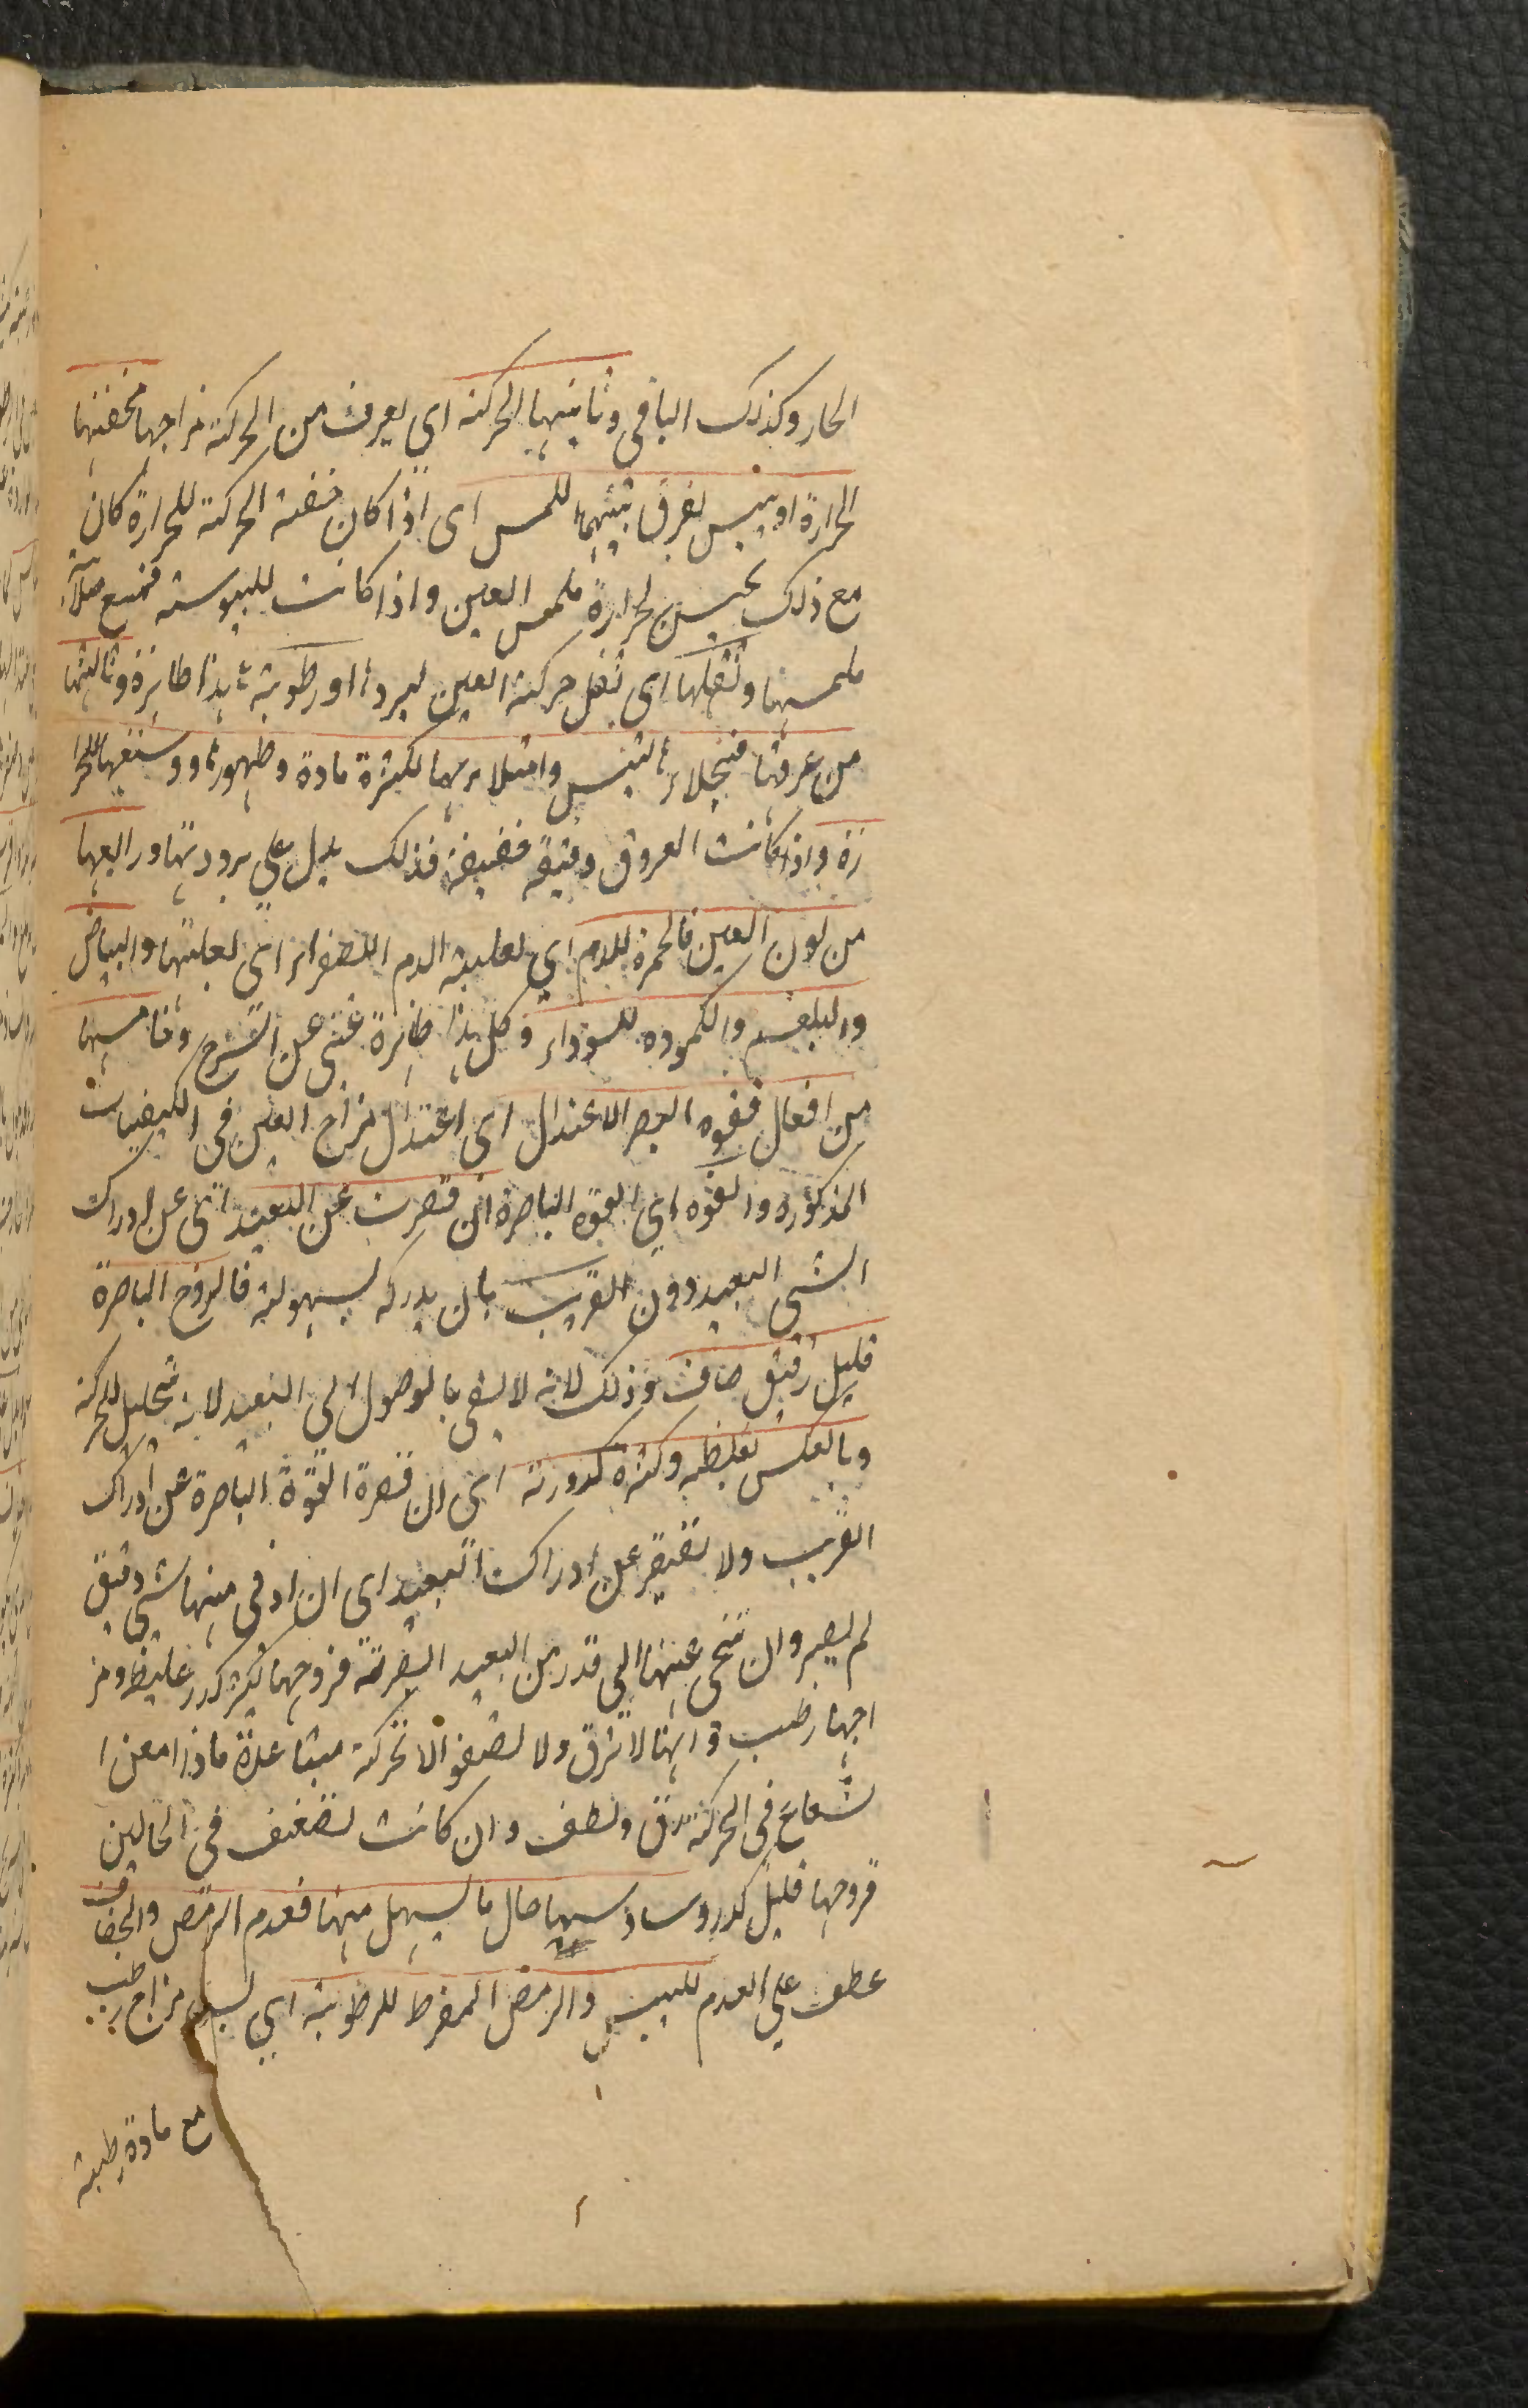 الحار وكذلك الباقى وثانيتها الحركة اى يعرف من الحركة مزاجها فخفتها
الحرارة او يبس يفرق بينهما اللمس اى اذا كان خفة الحركة للحرارة كان
مع ذلك يحس لحرارة ملمس العين واذا كانت لليبوسة فمع صلابة
ملمسها وثقلها اى ثقل حركة العين لبرد او رطوبة هذا ظاهرة وثالثها
من عروقها فتخلاء اليبس وامتلاءها لكثرة مادة وظهورها ووسعتها للحرا
رة واذا كانت العروق دقيقة خفيفة فذلك يدل على برودتها ورابعها
من لون العين فالحمرة للدم اى لغلبة الدم الصفراء اى لغلبتها والبياض
والبلغم والكمودة للسوداء وكل هذا ظاهرة غنى عن الشرح وخامسها
من افعال فقوة البصر الاعتدال اى اعتدال مزاج العين فى الكيفيات
المذكورة والقوة اى القوة الباصرة ان قصرت عن البعيد اى عن ادراك
الشى البعيد دون القريب بان يدركه بسهولة فالروح الباصرة
قليل رقيق صاف وذلك لانه لا يفى بالوصول الى البعيد لانه تحليل للحركة
وبالعكس لغلظه وكثرة كدورته اى ان قصرة القوة الباصرة عن ادراك
القريب ولا تقصر عن ادراك البعيد اى ان ادنى منها شى دقيق
لم يبصر وان نحى عنها الى قدر من البعيد ابصرته فروحها كثير كدر غليظ ومز
اجها رطب وانها لا ترق ولا تصفو الا بحركة متباعدة فاذا امعن ا
لشعاع فى الحركة رق ولطف وان كانت تضعف فى الحالين
فروحها قليل كدر وسادسها حال ما يسيل منها فعدم الرمص والجفاف
عطف على العدم لليبس والرمص المفرط للرطوبة اى مزاج رطب
مع مادة رطبة